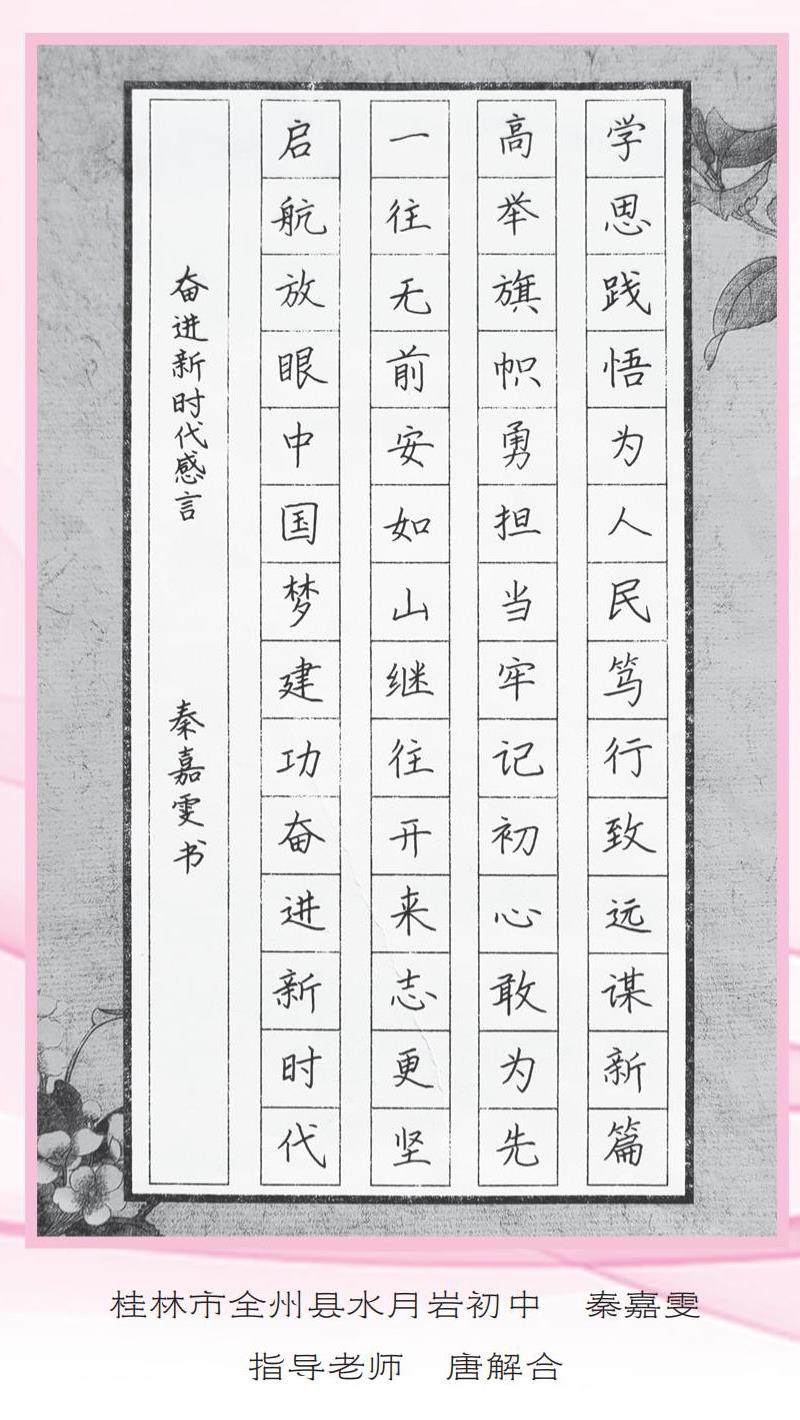 学思践悟为人民笃行致远谋新篇
高举旗帜勇担当牢记初心敢为先
一往无前安如山继往开来志更坚
启航放眼中国梦建功奋进新时代
奋进新时代感言 秦嘉雯书
桂林市全州县水月岩初中 秦嘉雯
指导老师 唐解合